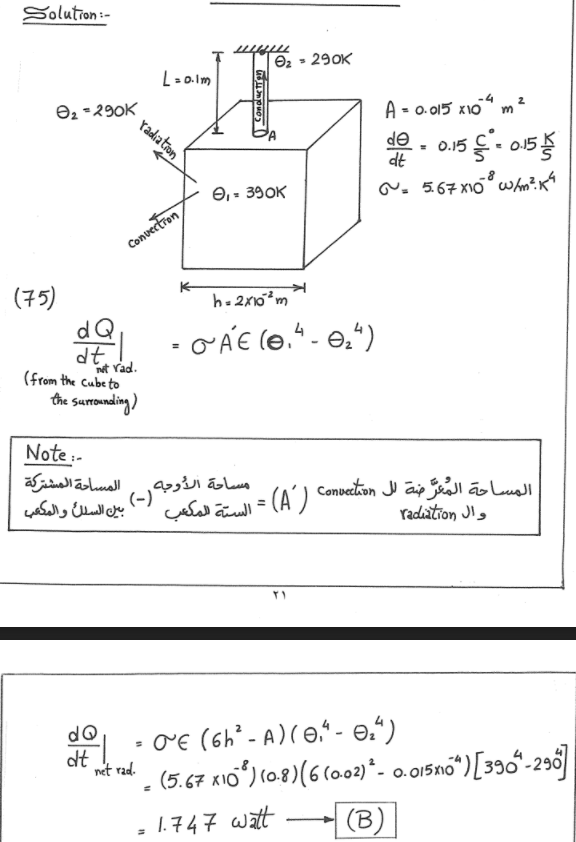 Solution:-
θ₂ = 290K
L = 0.1m
Conduction
A
θ₂ = 290K
radiation
θ₁ = 390K
Convection
h = 2×10⁻² m
A = 0.015 ×10⁻⁴ m²
dθ/dt = 0.15 C°/S = 0.15 K/S
σ = 5.67 ×10⁻⁸ w/m².K⁴
(75)
dQ/dt |net rad. = σ A′ ϵ (θ₁⁴ - θ₂⁴)
(from the cube to
the surrounding)
Note:-
المساحة المُعرَّضة لل Convection = (A′) مساحة الأوجه (-) المساحة المشتركة
وال radiation الستة للمكعب بين السلك والمكعب
٢١
dQ/dt |net rad. = σϵ (6h² - A)(θ₁⁴ - θ₂⁴)
= (5.67 ×10⁻⁸)(0.8)(6(0.02)² - 0.015×10⁻⁴)[390⁴-290⁴]
= 1.747 watt → (B)